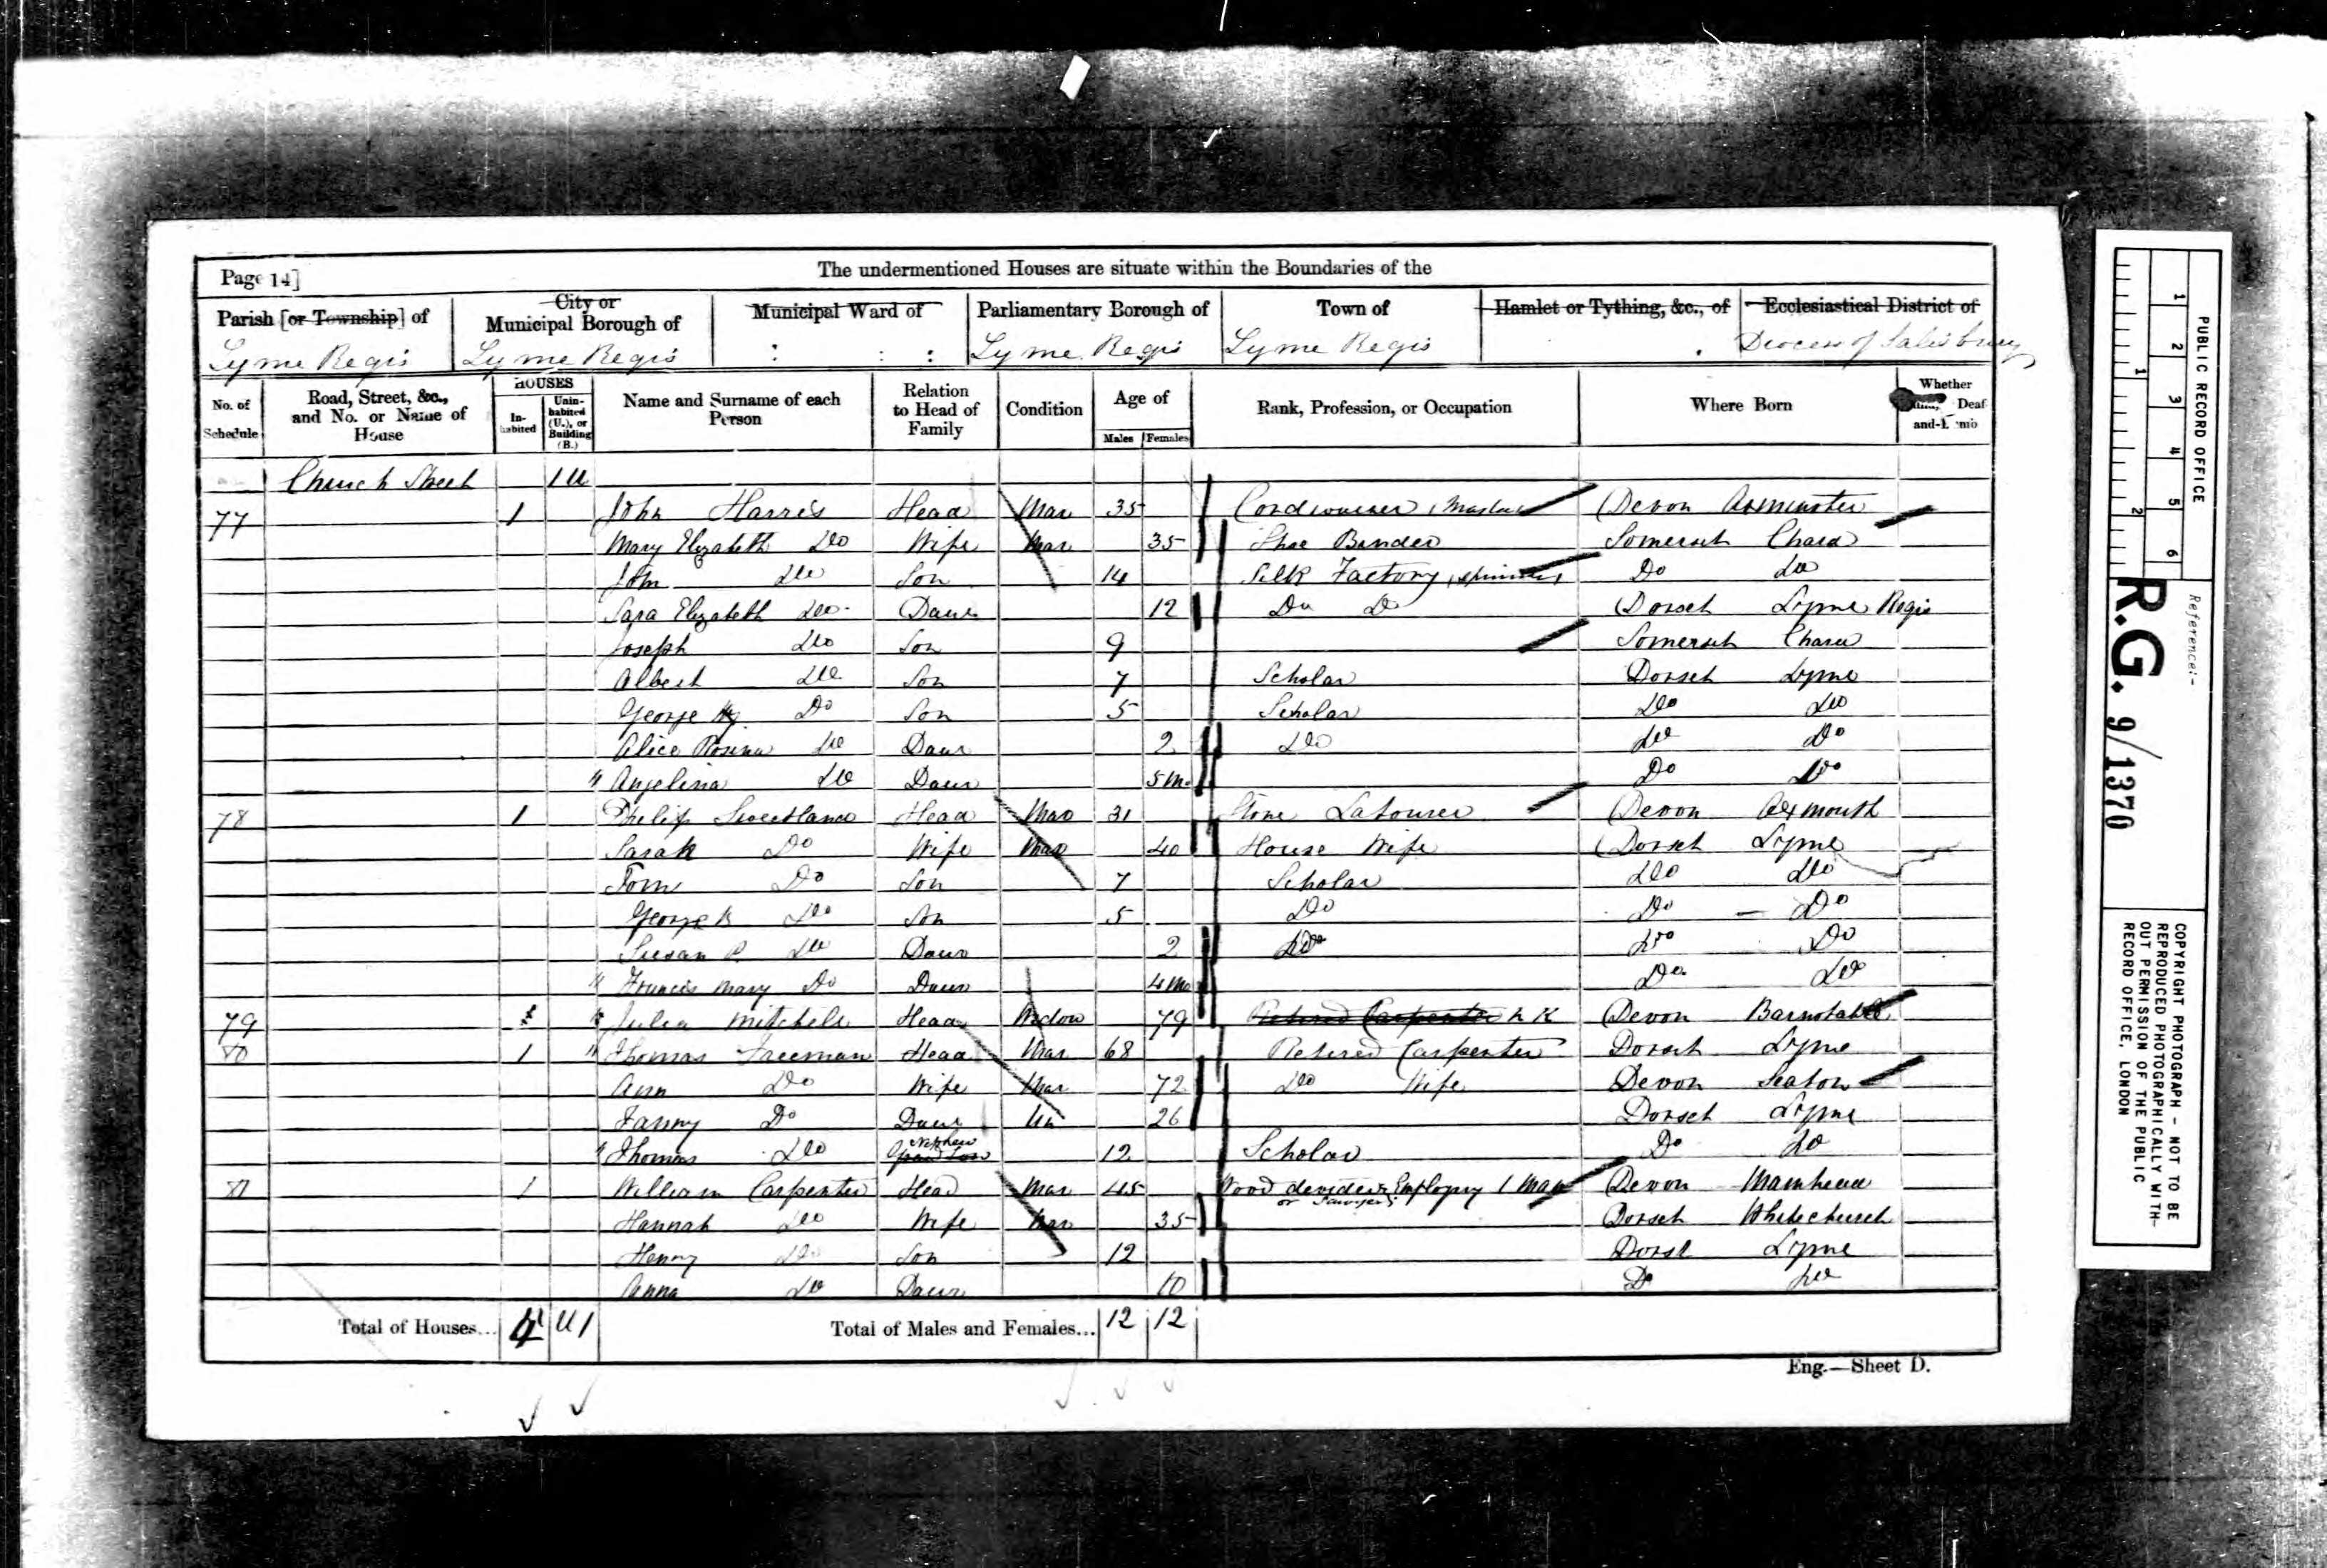 Page 14]
The undermentioned Houses are situate within the Boundaries of the
Parish [or Township] of
City or Municipal Borough of
Municipal Ward of
Parliamentary Borough of
Town of
Hamlet or Tything, &c., of
Ecclesiastical District of
Lyme Regis Lyme Regis Lyme Regis Lyme Regis Diocess of Salisbury
No. of Schedule
Road, Street, &c., and No. or Name of House
HOUSES
In-habited
Unin-habited (U.), or Building (B.)
Name and Surname of each Person
Relation to Head of Family
Condition
Age of
Males Females
Rank, Profession, or Occupation
Where Born
Whether Deaf-and-
Church Street 1 U
77 1 John Harris Head Mar 35 Cordwainer Master Devon Axminster
Mary Elizabeth Do Wife Mar 35 Shoe Binder Somerset Chard
John Do Son 14 Silk Factory Do Do
Sara Elizabeth Do Daur 12 Do Do Dorset Lyme Regis
Joseph Do Son 9 Somerset Chard
Albert Do Son 7 Scholar Dorset Lyme
George Do Son 5 Scholar Do Do
Alice Rosina Do Daur 2 Do Do Do
" Angelina Do Daur 5 m. Do Do
78 1 Philip Sweetland Head Mar 31 Stone Labourer Devon Axmouth
Sarah Do Wife Mar 40 House Wife Dorset Lyme
Tom Do Son 7 Scholar Do Do
George Do Son 5 Do Do Do
Susan Do Daur 2 Do Do Do
" Francis Mary Do Daur 4 Mo Do Do
79 Julia Mitchell Head Widow 79 Retired Carpenter Devon Barnstable
80 1 " Thomas Freeman Head Mar 68 Retired Carpenter Dorset Lyme
Ann Do Wife Mar 72 Do Wife Devon Seaton
Fanny Do Daur Un 26 Dorset Lyme
" Thomas Do Nephew Grand Son 12 Scholar Do Do
81 1 William Carpenter Head Mar 45 Wood devider or Sawyer Employing 1 Man Devon Mamhead
Hannah Do Wife Mar 35 Dorset Whitechurch
Henry Do Son 12 Dorset Lyme
Anna Do Daur 10 Do Do
Total of Houses... 4 U1 Total of Males and Females... 12 12
Eng.—Sheet D.
PUBLIC RECORD OFFICE
1 2 3 4 5 6
1 2
Reference:-
R.G. 9/1370
COPYRIGHT PHOTOGRAPH - NOT TO BE
REPRODUCED PHOTOGRAPHICALLY WITH-
OUT PERMISSION OF THE PUBLIC
RECORD OFFICE, LONDON